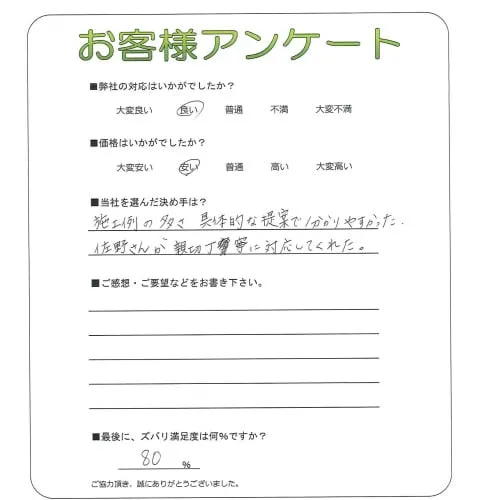 お客様アンケート
■弊社の対応はいかがでしたか？
大変良い 良い 普通 不満 大変不満
■価格はいかがでしたか？
大変安い 安い 普通 高い 大変高い
■当社を選んだ決め手は？
施工例の多さ 具体的な提案で分かりやすかった.
佐野さんが親切丁寧に対応してくれた。
■ご感想・ご要望などをお書き下さい。
■最後に、ズバリ満足度は何%ですか？
80 %
ご協力頂き、誠にありがとうございました。